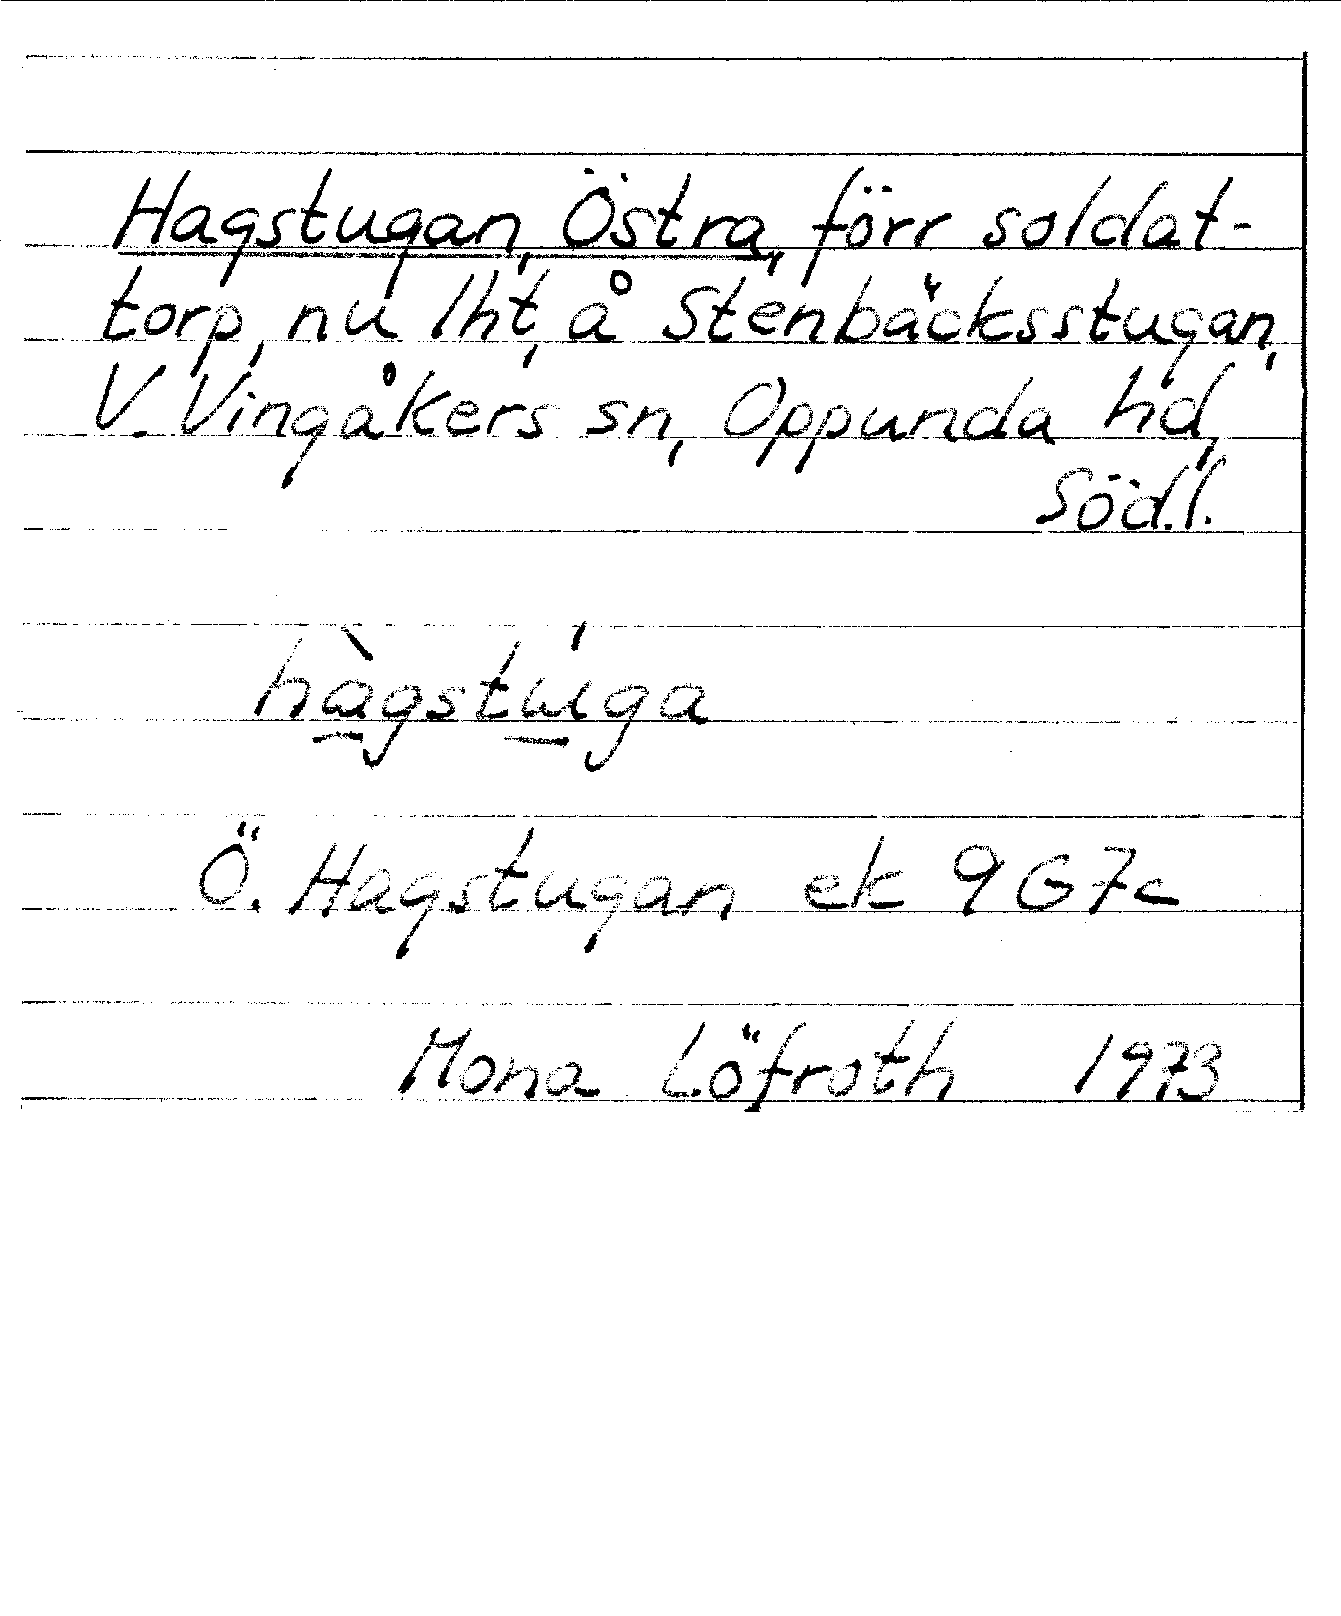 Hagstugan, Östra, förr soldat-
torp, nu lht, å Stenbäcksstugan,
V. Vingåkers sn, Oppunda hd,
Söd.l.
hàgstúga
Ö. Hagstugan ek 9G7c
Mona Löfroth 1973